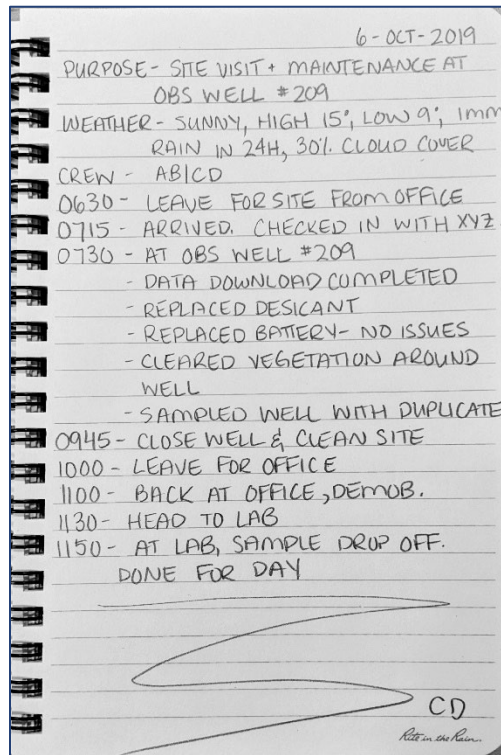 6-OCT-2019
PURPOSE- SITE VISIT + MAINTENANCE AT
OBS WELL #209
WEATHER- SUNNY, HIGH 15°, LOW 9°, 1mm
RAIN IN 24H, 30% CLOUD COVER
CREW - AB/CD
0630- LEAVE FOR SITE FROM OFFICE
0715- ARRIVED. CHECKED IN WITH XYZ
0730- AT OBS WELL #209
- DATA DOWNLOAD COMPLETED
- REPLACED DESICANT
- REPLACED BATTERY- NO ISSUES
- CLEARED VEGETATION AROUND
WELL
- SAMPLED WELL WITH DUPLICATE
0945- CLOSE WELL & CLEAN SITE
1000- LEAVE FOR OFFICE
1100- BACK AT OFFICE, DEMOB.
1130- HEAD TO LAB
1150- AT LAB, SAMPLE DROP OFF.
DONE FOR DAY
CD
Rite in the Rain